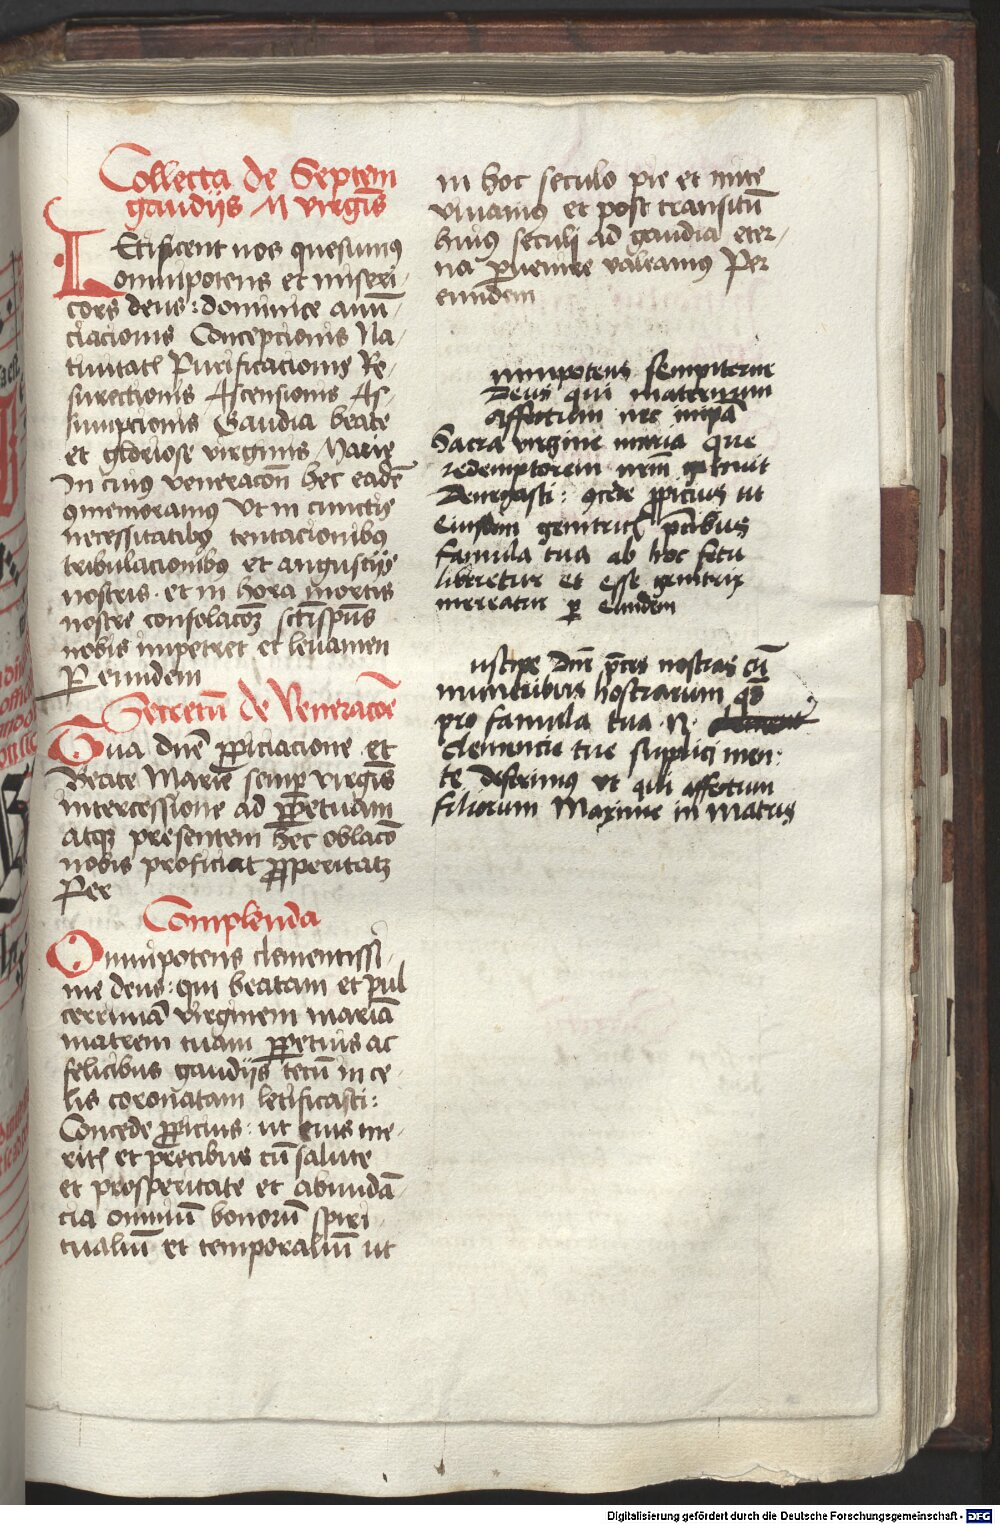 Collecta de Septem
gaudijs M virgīs
LEtificent nos quesumus
omnipotens et miseri-
cors deus: dominice anū-
ciacionis Concepcionis Na-
tiuitatꝭ Purificacionis Re-
surectionis Ascensionis As-
sumpcionis Gaudia beate
et gloriose virginis Marie
In cuius veneracōn hec eadē
ꝯmemoramus Ut in cunctis
necessitatibus tentacionibus
tribulacionibus et angustijs
nostris. et in hora mortis
nostre consolacōꝫ sctīspūs
nobis impetret et leuamen
Per eundem
Secretū de Veneracōe
Tua dnē ꝓpiciacione et
Beate Marie semꝑ virgīs
intercessione ad ꝑpetuam
atqꝫ presentem hec oblacō
nobis proficiat ꝓsperitatꝫ
Per
Complenda
Omnipotens clementissi-
me deus: qui beatam et pul
cerrimā virginem mariā
matrem tuam ꝑpetuis ac
felicibus gaudijs tecū in ce-
lis coronatam letificasti:
Concede ꝓpicius: ut eius me-
ritꝭ et precibus cū salute
et prosperitate et abundā-
cia omniū bonorū spiri-
tualiū et temporaliū ut
in hoc seculo pie et mite
viuamus et post transitū
huius seculi ad gaudia eter-
na ꝑuenire valeamus Per
eundem
mnipotens sempiterne
Deus qui maternum
affectum nec in ipā
Sacra virgine maria que
redemptorem nrm̄ genuit
Denegasti: ꝯcede ꝓpicius ut
Eiusdem genitricꝭ p̄cibus
famula tua ab hoc fetu
liberetur et esse genitrix
mereatur ꝑ Eundem
uscipe Dnē p̄ces nostras cū
muneribus hostiarum qs̄
pro famula tua .N.
clemencie tue suplici men-
te deferimus vt qui affectum
filiorum Maxime in Matris